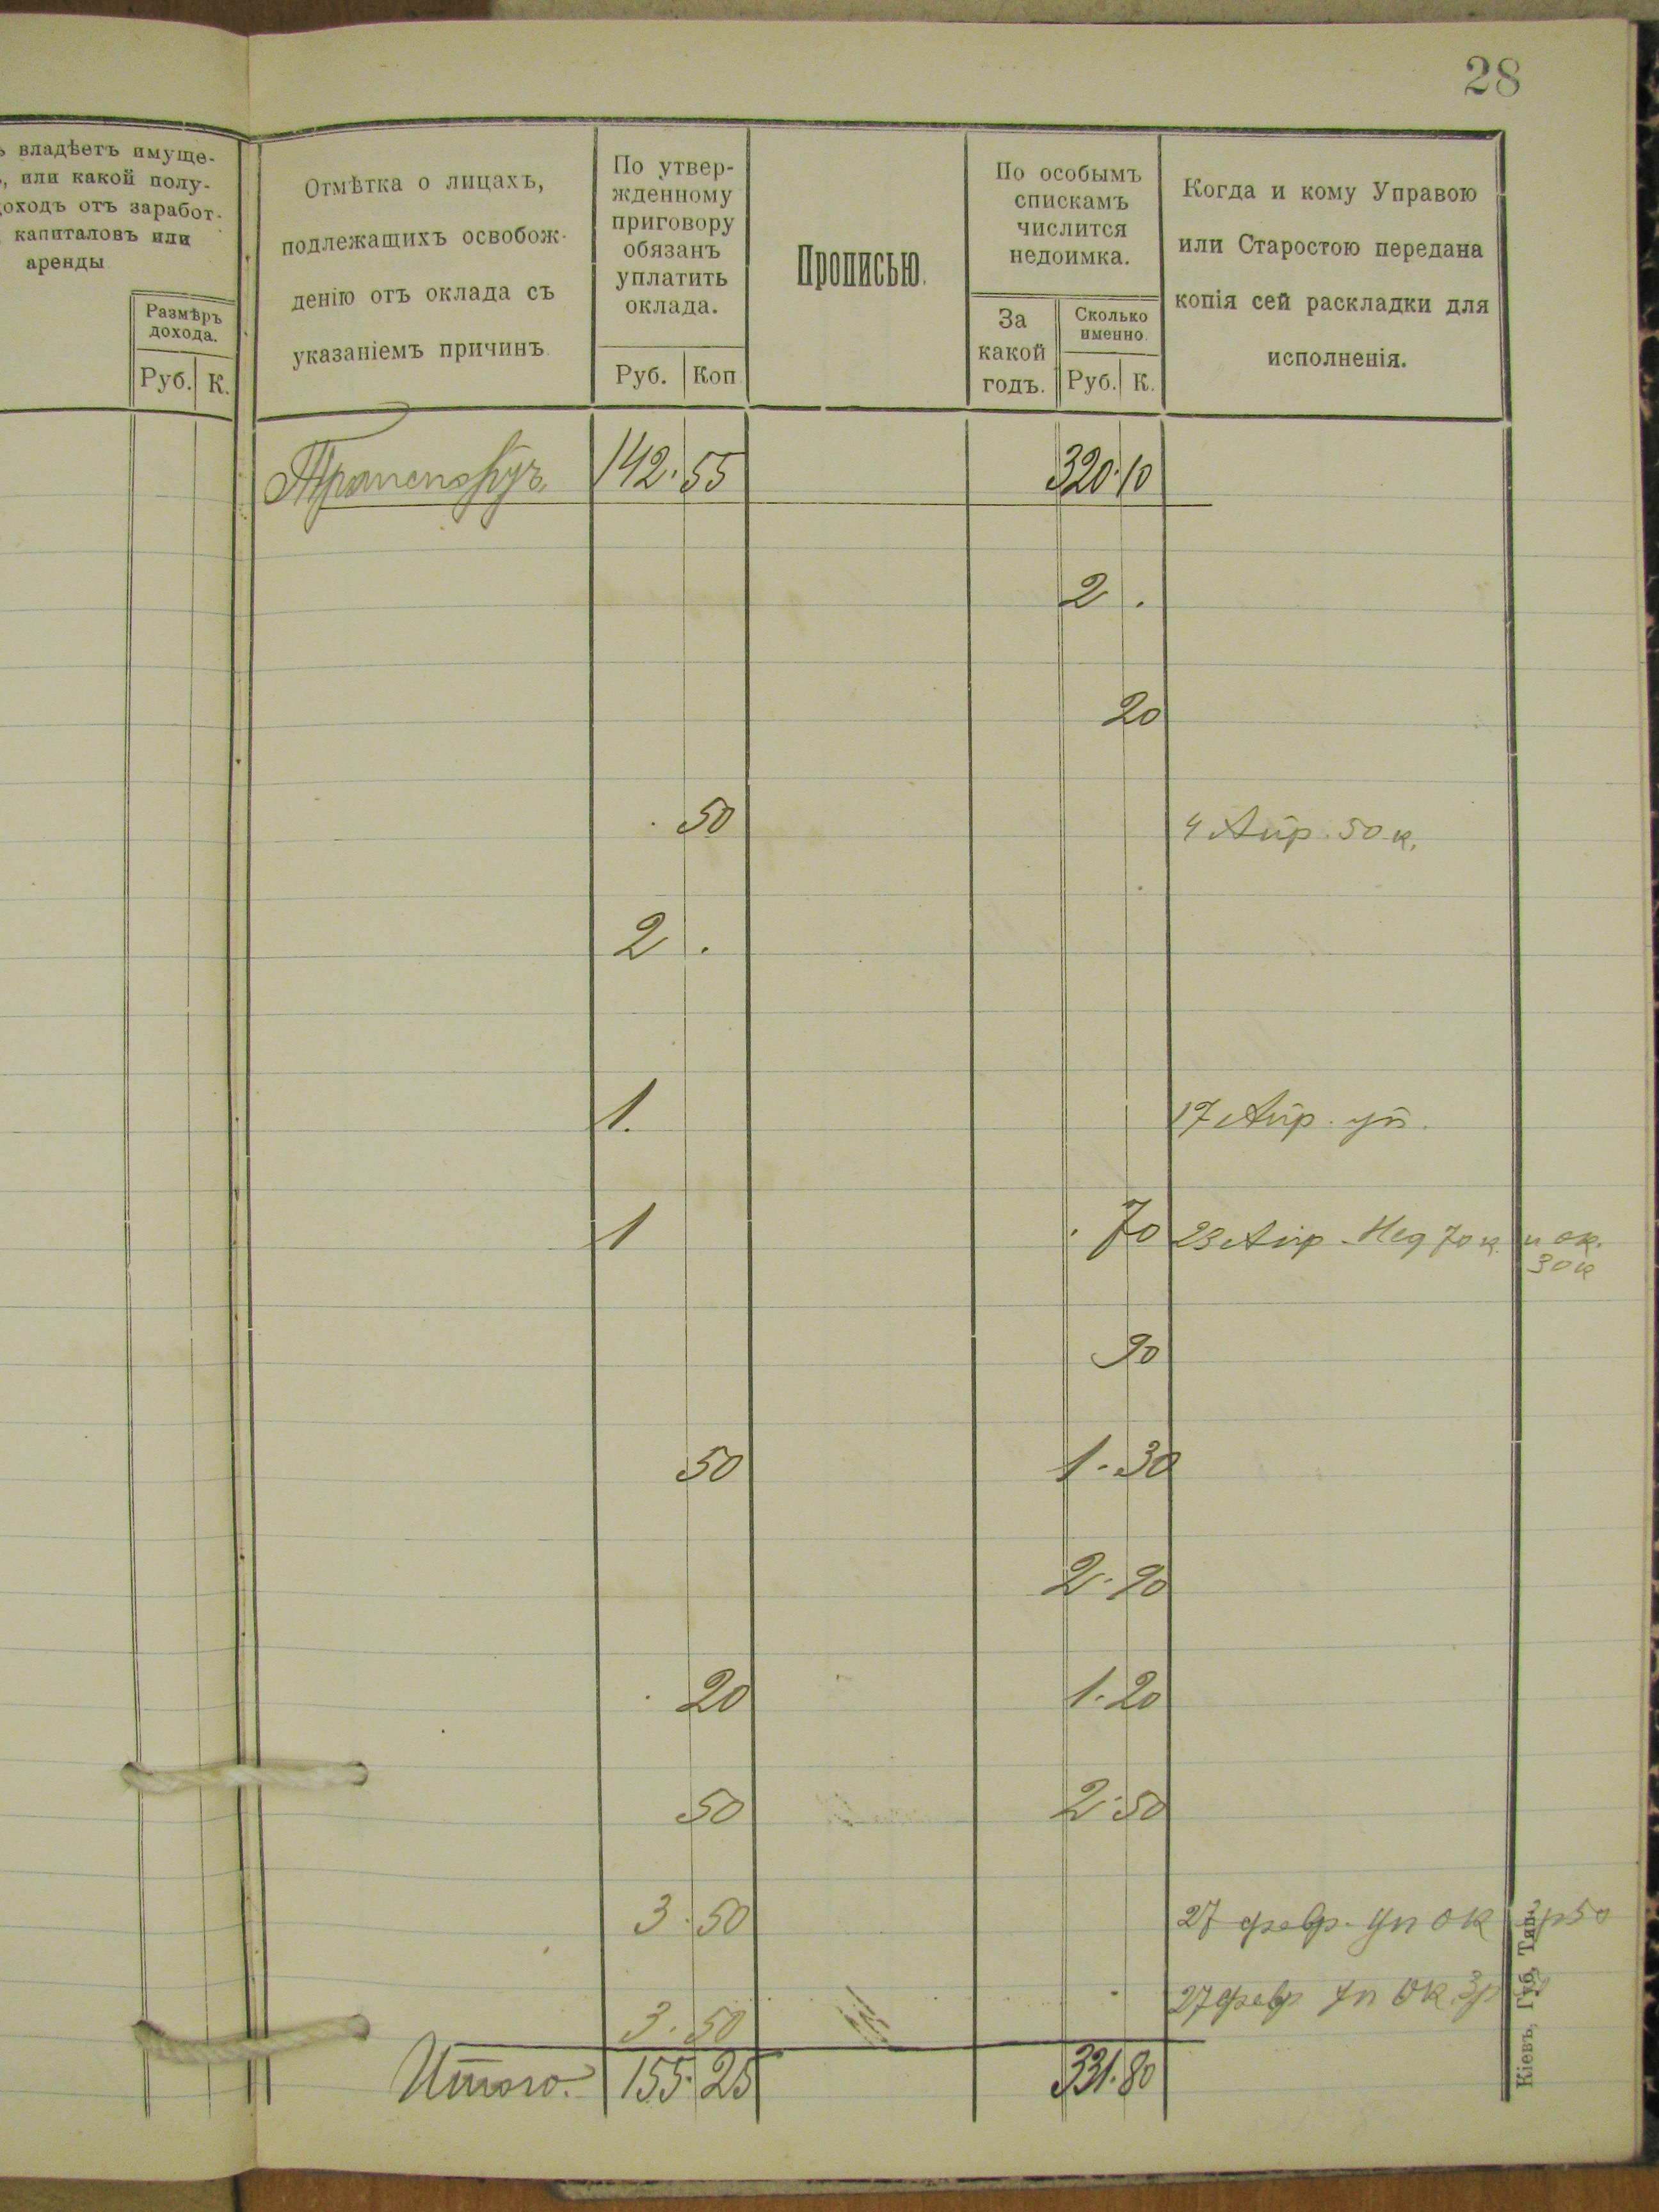 28
ъ владѣетъ имуще-
, или какой полу-
доходъ отъ заработ-
капиталовъ или
аренды
Размѣръ
дохода.
Руб. К.
Отмѣтка о лицахъ,
подлежащихъ освобож-
денію отъ оклада съ
указаніемъ причинъ.
По утвер-
жденному
приговору
обязанъ
уплатить
оклада.
Руб. Коп.
Прописью.
По особымъ
спискамъ
числится
недоимка.
За
какой
годъ.
Сколько
именно.
Руб. К.
Когда и кому Управою
или Старостою передана
копія сей раскладки для
исполненія.
Транспортъ 142. 55 320. 10
2 .
20
. 50 4 Апр. 50 к.
2 .
1. 17 Апр. уп.
1 . 70 23 Апр. Нед 70 к и ок.
30 к
90
50 1. 30
2. 90
. 20 1. 20
50 2. 50
3. 50 27 февр. уп ок 3р50
3. 50 27 февр уп ок. 3р
Итого. 155. 25 331. 80
Кіевъ, Губ. Тип.